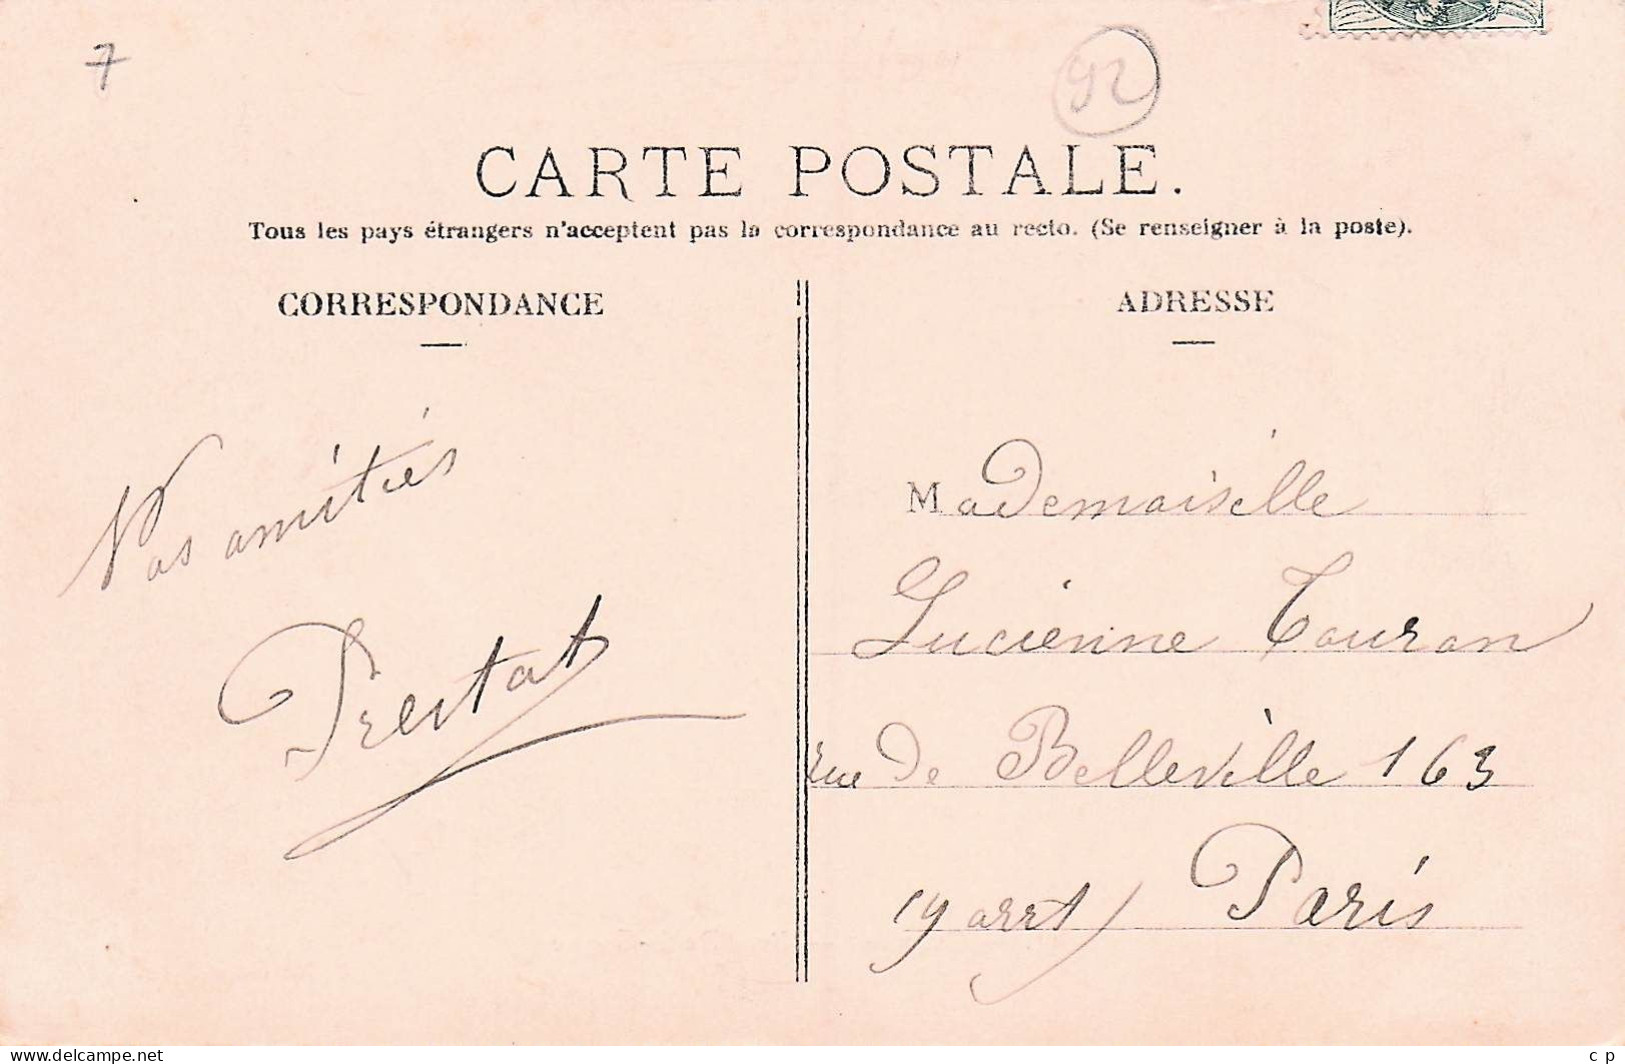 7
92
CARTE POSTALE.
Tous les pays étrangers n'acceptent pas la correspondance au recto. (Se renseigner à la poste).
CORRESPONDANCE
Nos amitiés
Prestat
ADRESSE
Mademoiselle
Lucienne Touron
rue de Belleville 163
19 arrt Paris
www.delcampe.net
c_p